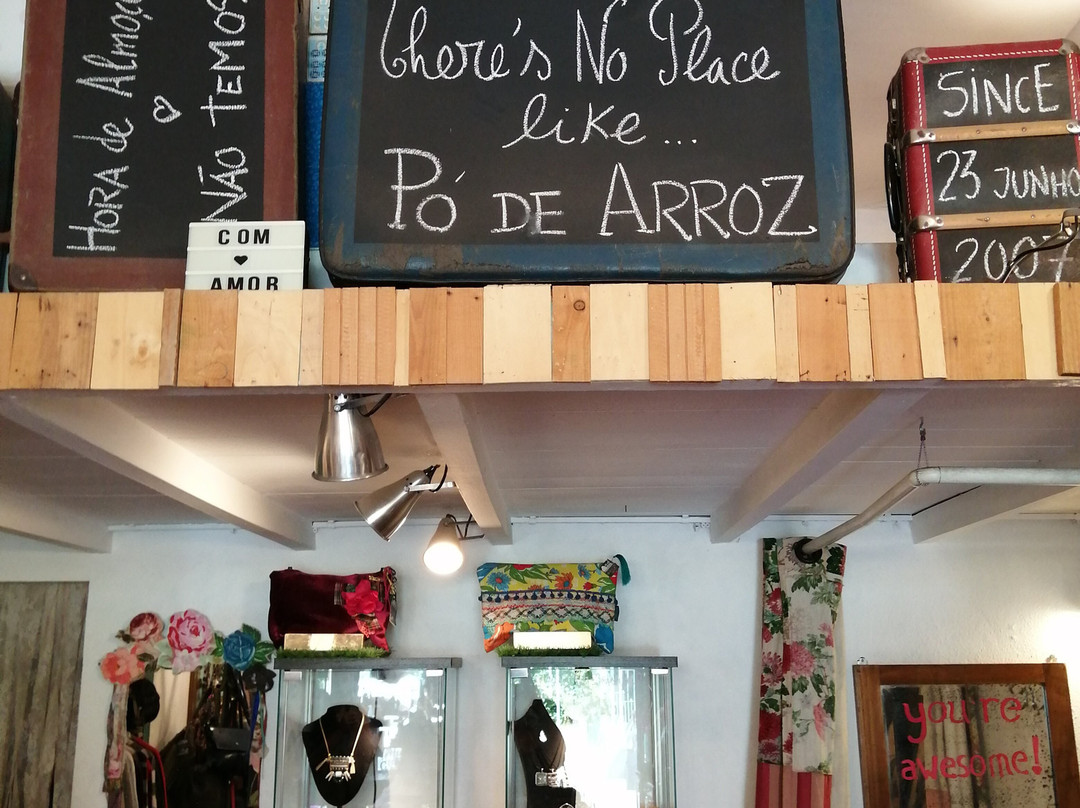 HORA de Almoço
♡
NÃO TEMOS
COM
♥
AMOR
There's No Place
like...
Pó DE ARROZ
SINCE
23 JUNHO
2007
you're
awesome!